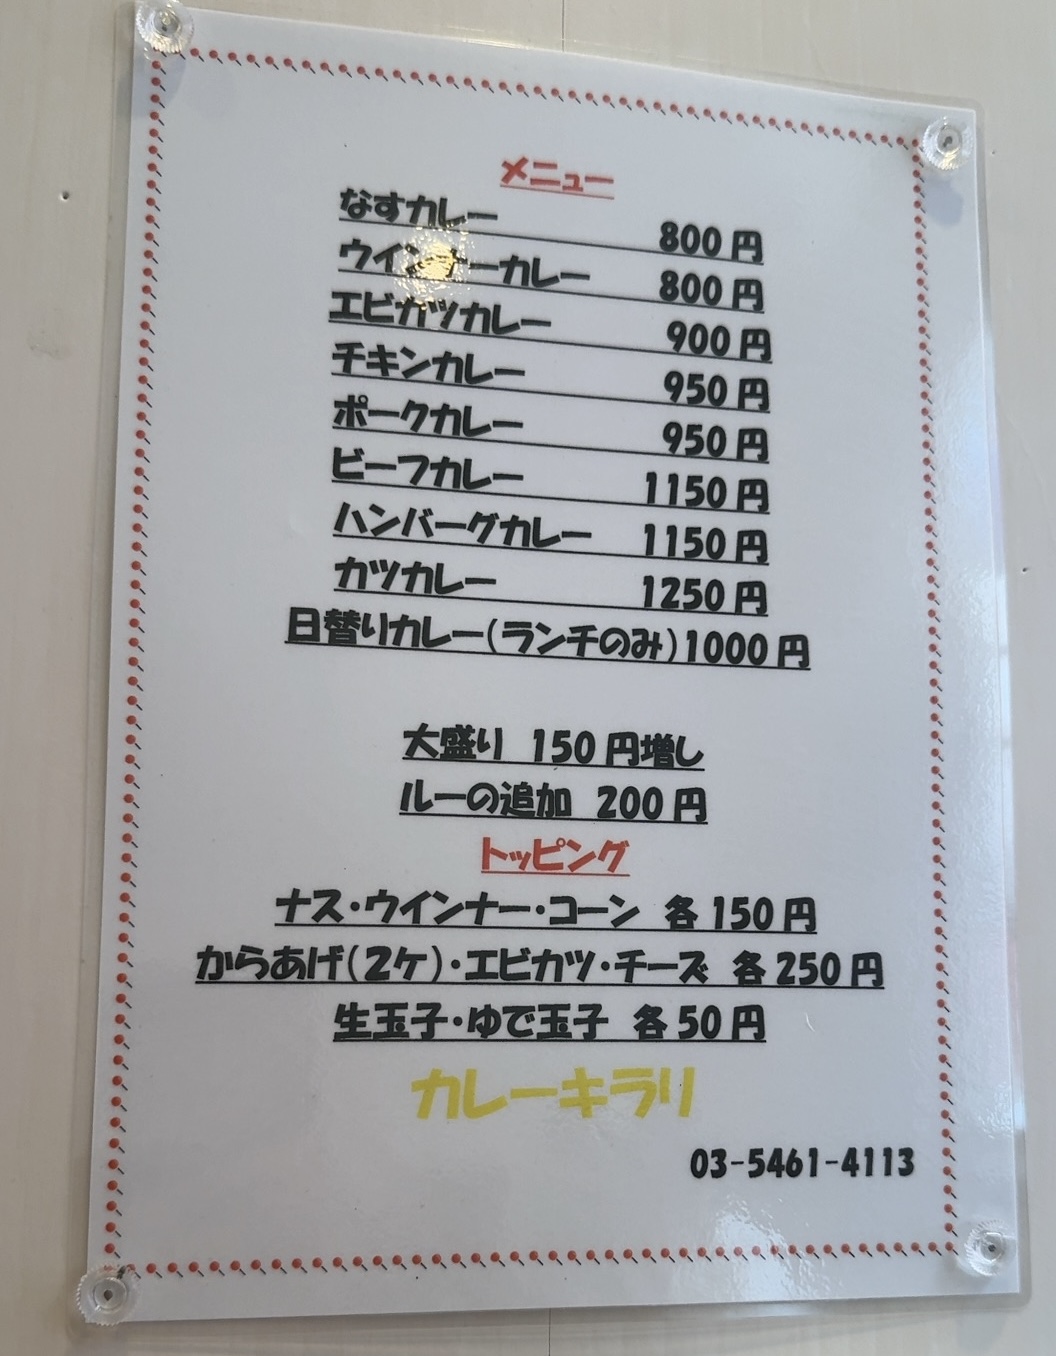 メニュー
なすカレー 800円
ウインナーカレー 800円
エビカツカレー 900円
チキンカレー 950円
ポークカレー 950円
ビーフカレー 1150円
ハンバーグカレー 1150円
カツカレー 1250円
日替りカレー(ランチのみ)1000円
大盛り 150円増し
ルーの追加 200円
トッピング
ナス・ウインナー・コーン 各150円
からあげ(2ケ)・エビカツ・チーズ 各250円
生玉子・ゆで玉子 各50円
カレーキラリ
03-5461-4113